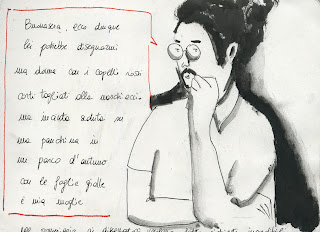 Buonasera, ecco dunque
lei potrebbe disegnarmi
una donna con i capelli rossi
corti tagliati alla maschiaccio
una incinta seduta su
una panchina in
un parco d'autunno
con le foglie gialle
è mia moglie